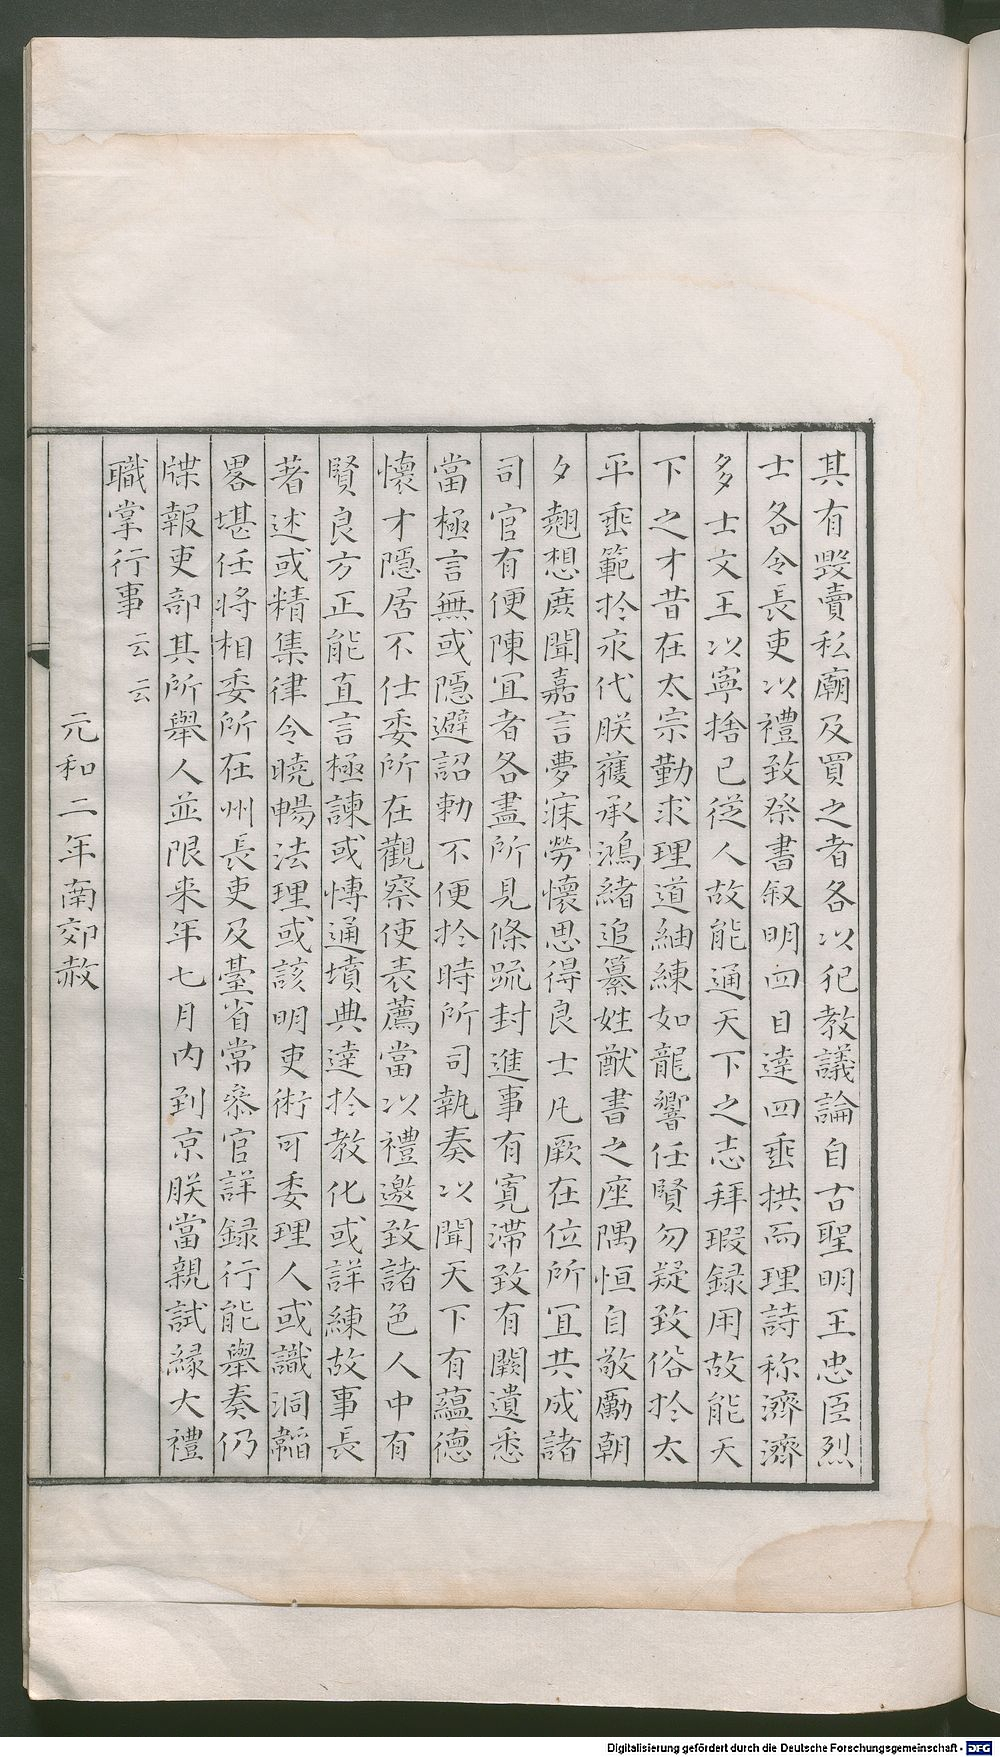 其有毀賣私廟及買之者各以犯教議論自古聖明王忠臣烈
士各令長吏以禮致祭書叙明四目達四垂拱而理詩称濟濟
多士文王以寧捨己従人故能通天下之志拜瑕録用故能天
下之才昔在太宗勤求理道紬練如龍響任賢勿疑致俗扵太
平垂範扵永代朕獲承鴻緒追纂姓猷書之座隅恒自敬勵朝
夕翹想庶聞嘉言夢寐勞懷思得良士凡厥在位所宜共成諸
司官有便陳宜者各盡所見條疏封進事有寛滞致有闕遺悉
當極言無或隱避詔勅不便扵時所司執奏以聞天下有蘊德
懷才隱居不仕委所在觀察使表薦當以禮邀致諸色人中有
賢良方正能直言極諫或慱通墳典達扵教化或詳練故事長
著述或精集律令曉暢法理或該明吏術可委理人或識洞韜
畧堪任将相委所在州長吏及臺省常叅官詳録行能舉奏仍
牒報吏部其所舉人並限来年七月内到京朕當親試縁大禮
職掌行事云云
元和二年南郊赦
Digitalisierung gefördert durch die Deutsche Forschungsgemeinschaft - DFG